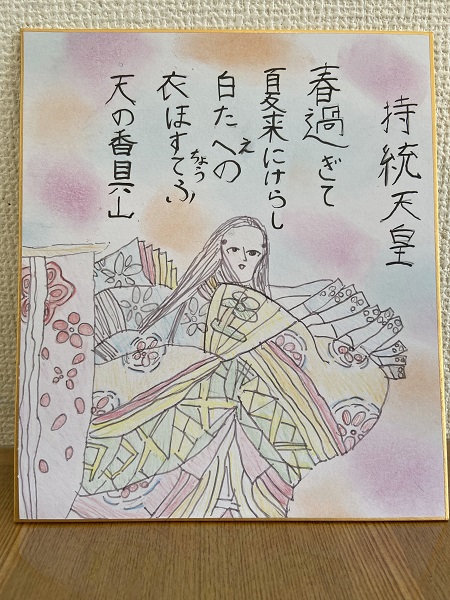 持統天皇
春過ぎて
夏来にけらし
白たへの
え
衣ほすてふ
ちょう
天の香具山